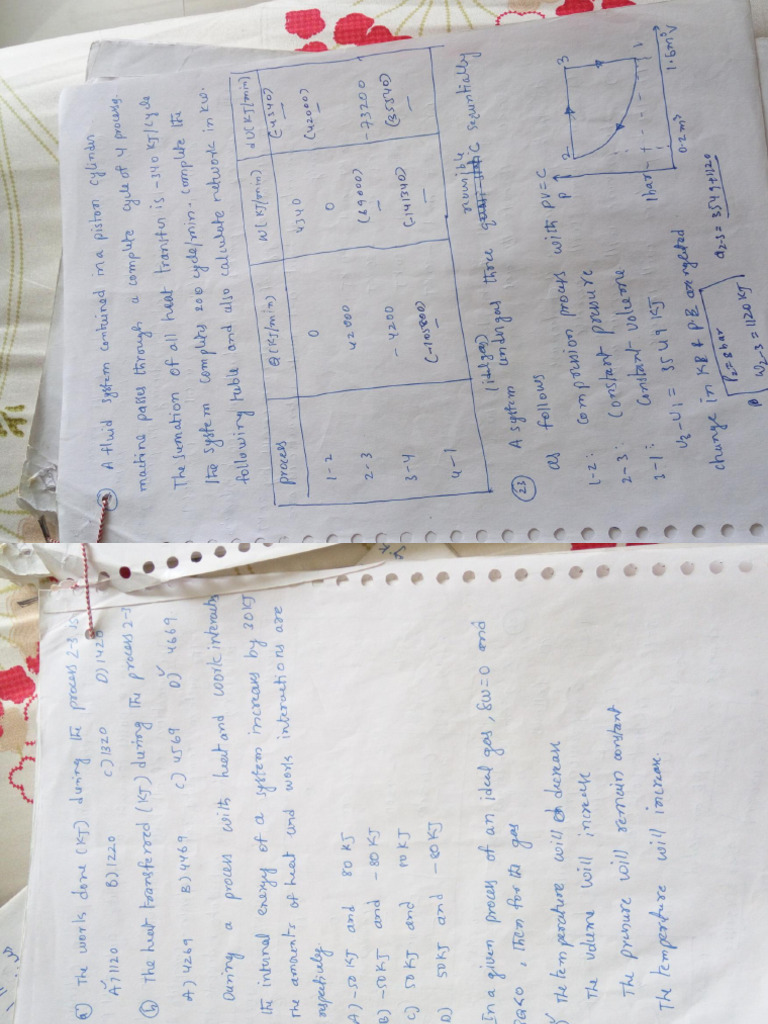 A fluid system contained in a piston cylinder
machine passes through a complete cycle of 4 process.
The sumation of all heat transfer is -340 KJ/cycle
the system complets 200 cycle/min. complete the
following table and also calculate network in kw.
process Q(KJ/min) W(KJ/min) dU(KJ/min)
1-2 0 4340 (-4340)
2-3 42000 0 (42000)
3-4 -4200 (69000) -73200
4-1 (-105800) (-141340) (35540)
(23) A system (idelgas) undergoes three nowible sequentially
as follows
1-2: compression process with PV=C
2-3: constant pressure
3-1: constant volume
U3-U1 = 3549 KJ
change in KE & PE are neglected
P2=8bar
W2-3=1120KJ
Q2-3= 3549+1120
P
2
3
1
1bar
0.2m³
1.6m³
V
a) The work done (KJ) during the process 2-3 is
A) 1120 B) 1220 C) 1320 D) 1420
b) The heat transferred (KJ) during the process 2-3
A) 4269 B) 4469 C) 4569 D) 4669
During a process with heat and work interactions
the internal energy of a system increases by 30KJ
the amounts of heat and work interactions are
respectively.
A) -50 KJ and 80 KJ
B) -50KJ and -80 KJ
C) 50 KJ and 10 KJ
D) 50KJ and -80 KJ
In a given process of an ideal gas, δw=0 and
δQ<0, Then for the gas
The temperature will decrease
The volume will increase
The pressure will remain constant
The temperature will increase.